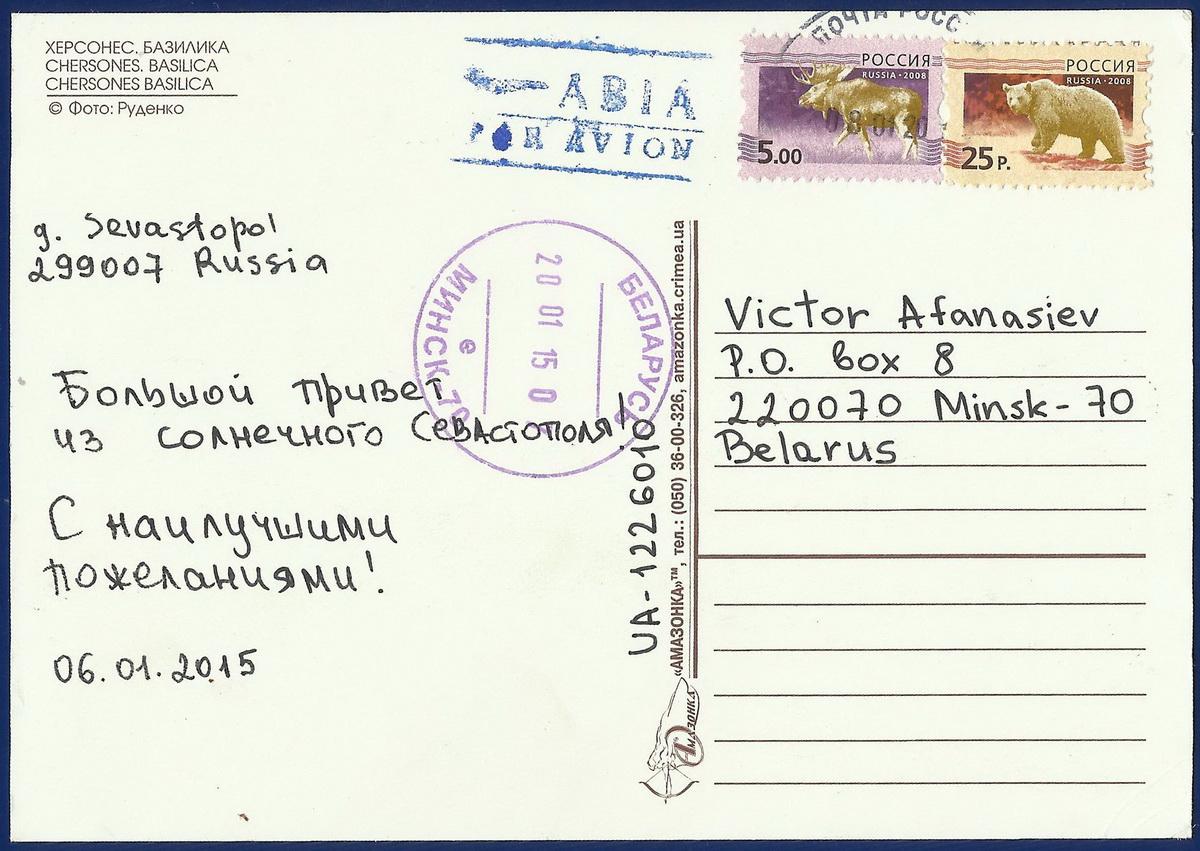 ХЕРСОНЕС. БАЗИЛИКА
CHERSONES. BASILICA
CHERSONES BASILICA
© Фото: Руденко
АВІА
PAR AVION
ПОЧТА РОСС
РОССИЯ
RUSSIA · 2008
5.00
РОССИЯ
RUSSIA · 2008
25 Р.
g. Sevastopol
299007 Russia
БЕЛАРУСЬ
20 01 15 0
МИНСК-70
е
Большой привет
из солнечного Севастополя!
С наилучшими
пожеланиями!
06.01.2015
UA-1226010
«АМАЗОНКА»™, тел.: (050) 36-00-326, amazonka.crimea.ua
АМАЗОНКА
Victor Afanasiev
P.O. box 8
220070 Minsk-70
Belarus